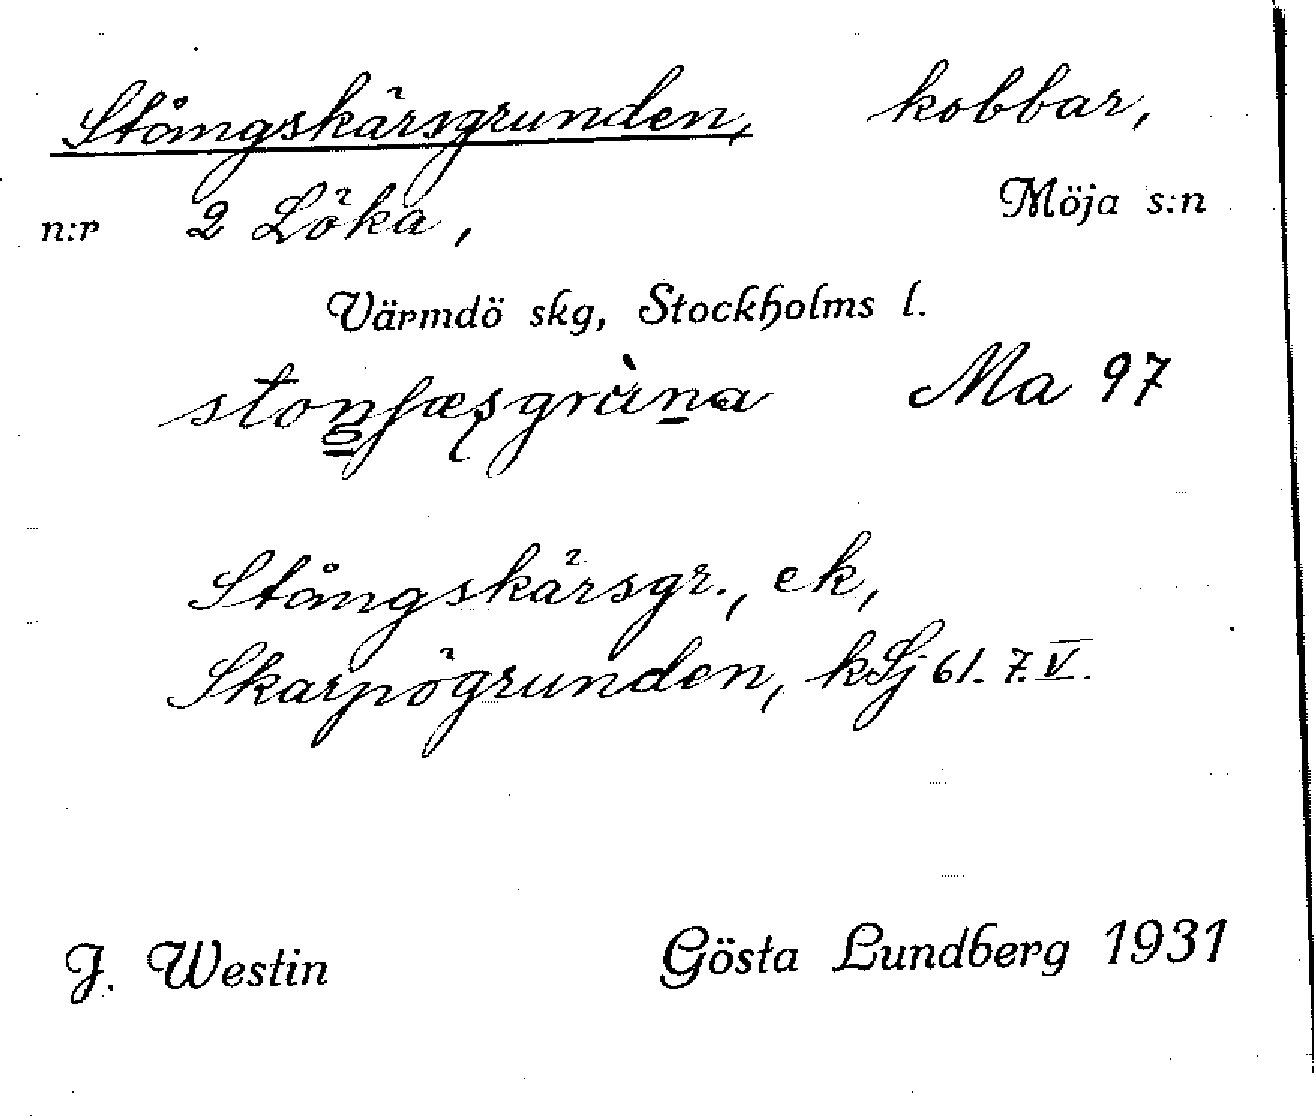 Stångskärsgrunden, kobbar,
n:r 2 Löka, Möja s:n
Värmdö skg, Stockholms l.
Ma 97
Stångskärsgr., ek,
Skarpögrunden, kSj 61. 7. V.
J. Westin Gösta Lundberg 1931